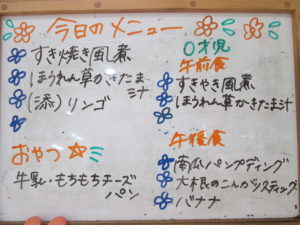 今日のメニュー
すき焼き風煮
ほうれん草かきたま
汁
(添)リンゴ
おやつ
牛乳・もちもちチーズ
パン
0才児
午前食
すきやき風煮
ほうれん草かきたま汁
午後食
南瓜パンプディング
大根のこんがりスティック
バナナ